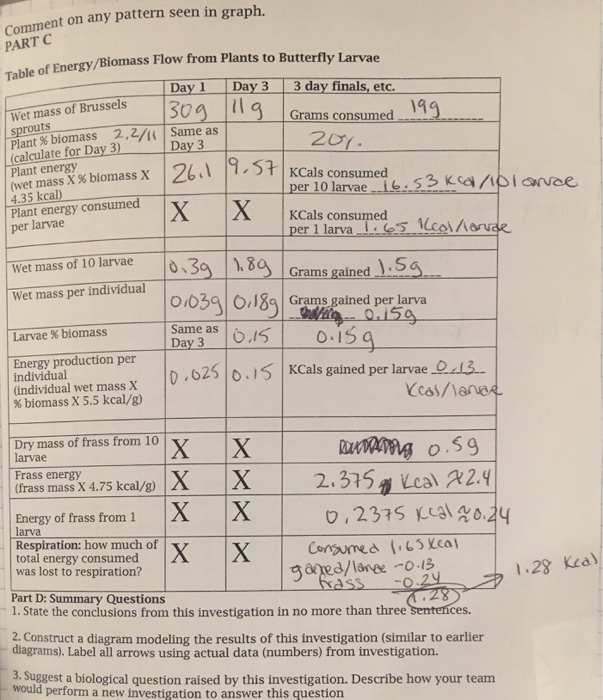 Comment on any pattern seen in graph.
PART C
Table of Energy/Biomass Flow from Plants to Butterfly Larvae
Day 1 Day 3 3 day finals, etc.
Wet mass of Brussels sprouts 30g 11g Grams consumed 19g
Plant % biomass 2.2/11 (calculate for Day 3) Same as Day 3 20%.
Plant energy (wet mass X % biomass X 4.35 kcal) 26.1 9.57 KCals consumed per 10 larvae 16.53 Kcal/10 larvae
Plant energy consumed per larvae X X KCals consumed per 1 larva 1.65 Kcal/larvae
Wet mass of 10 larvae 0.3g 1.8g Grams gained 1.5g
Wet mass per individual 0.03g 0.18g Grams gained per larva 0.15g
Larvae % biomass Same as Day 3 0.15 0.15g
Energy production per individual (individual wet mass X % biomass X 5.5 kcal/g) 0.025 0.15 KCals gained per larvae 0.13 Kcal/larvae
Dry mass of frass from 10 larvae X X 0.5g
Frass energy (frass mass X 4.75 kcal/g) X X 2.375 Kcal ≈2.4
Energy of frass from 1 larva X X 0.2375 Kcal ≈0.24
Respiration: how much of total energy consumed was lost to respiration? X X Consumed 1.65 Kcal
gained/larvae -0.13
frass -0.24
1.28 → 1.28 Kcal
Part D: Summary Questions
1. State the conclusions from this investigation in no more than three sentences.
2. Construct a diagram modeling the results of this investigation (similar to earlier
diagrams). Label all arrows using actual data (numbers) from investigation.
3. Suggest a biological question raised by this investigation. Describe how your team
would perform a new investigation to answer this question